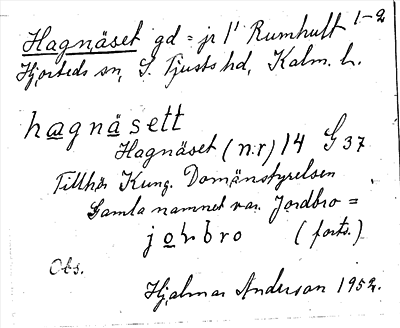 Hagnäset gd = jr 1¹ Rumhult 1-2
Hjorteds sn, S. Tjusts hd, Kalm. l.
hagnäsett
Hagnäset (nr) 14 G 37
Tillhör Kung. Domänstyrelsen
Gamla namnet var Jordbro =
jobro (forts.)
Obs.
Hjalmar Anderson 1952.